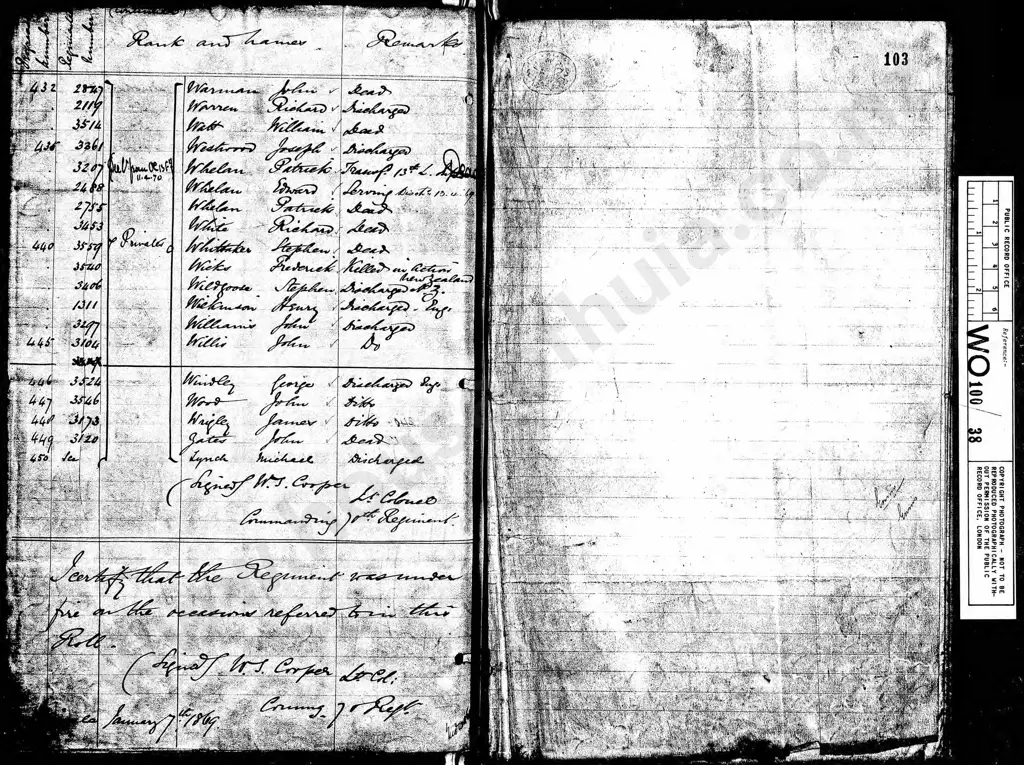 Rank and Names. Remarks
432 2847 Warman John Dead
2119 Warren Richard Discharged
3514 Watt William Dead
436 3361 Westwood Joseph Discharged
3207 Whelan Patrick Transf. 13th L.
2488 Whelan Edward Serving
2755 Whelan Patrick Dead
3453 White Richard Dead
440 3559 Privates Whittaker Stephen Dead
3540 Wicks Frederick Killed in Action New Zealand
3406 Wildgoose Stephen Discharged N.Z.
1311 Wickinson Henry Discharged Eng.
3297 Williams John Discharged
445 3104 Willis John Do
446 3524 Windley George Discharged Eng.
447 3546 Wood John Ditto
448 3173 Wrigley James Ditto
449 3120 Yates John Dead
450 Lynch Michael Discharged
(Signed) W. S. Cooper
Lt Colonel
Commanding 70th Regiment.
I certify that the Regiment was under
fire on the occasions referred to in this
Roll.
(Signed) W. S. Cooper Lt Col:
Commg 70 Regt.
January 7th 1869
103
PUBLIC RECORD OFFICE
1 2 3 4 5 6
1 2
Reference:-
WO 100 / 38
COPYRIGHT PHOTOGRAPH - NOT TO BE
REPRODUCED PHOTOGRAPHICALLY WITH-
OUT PERMISSION OF THE PUBLIC
RECORD OFFICE, LONDON